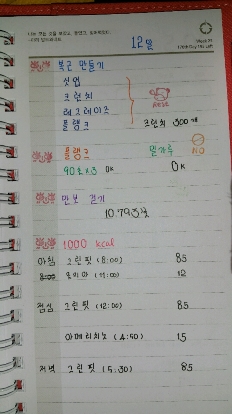 12일
복근 만들기
싯업
크런치
레그레이즈
플랭크
REST
크런치 300개
플랭크
밀가루
NO
90초x3 OK
OK
만보 걷기
10.793보
1000 kcal
아침 그린핏 (8:00) 85
(11:00) 12
점심 그린핏 (12:00) 85
아메리카노 (4:50) 15
저녁 그린핏 (5:30) 85